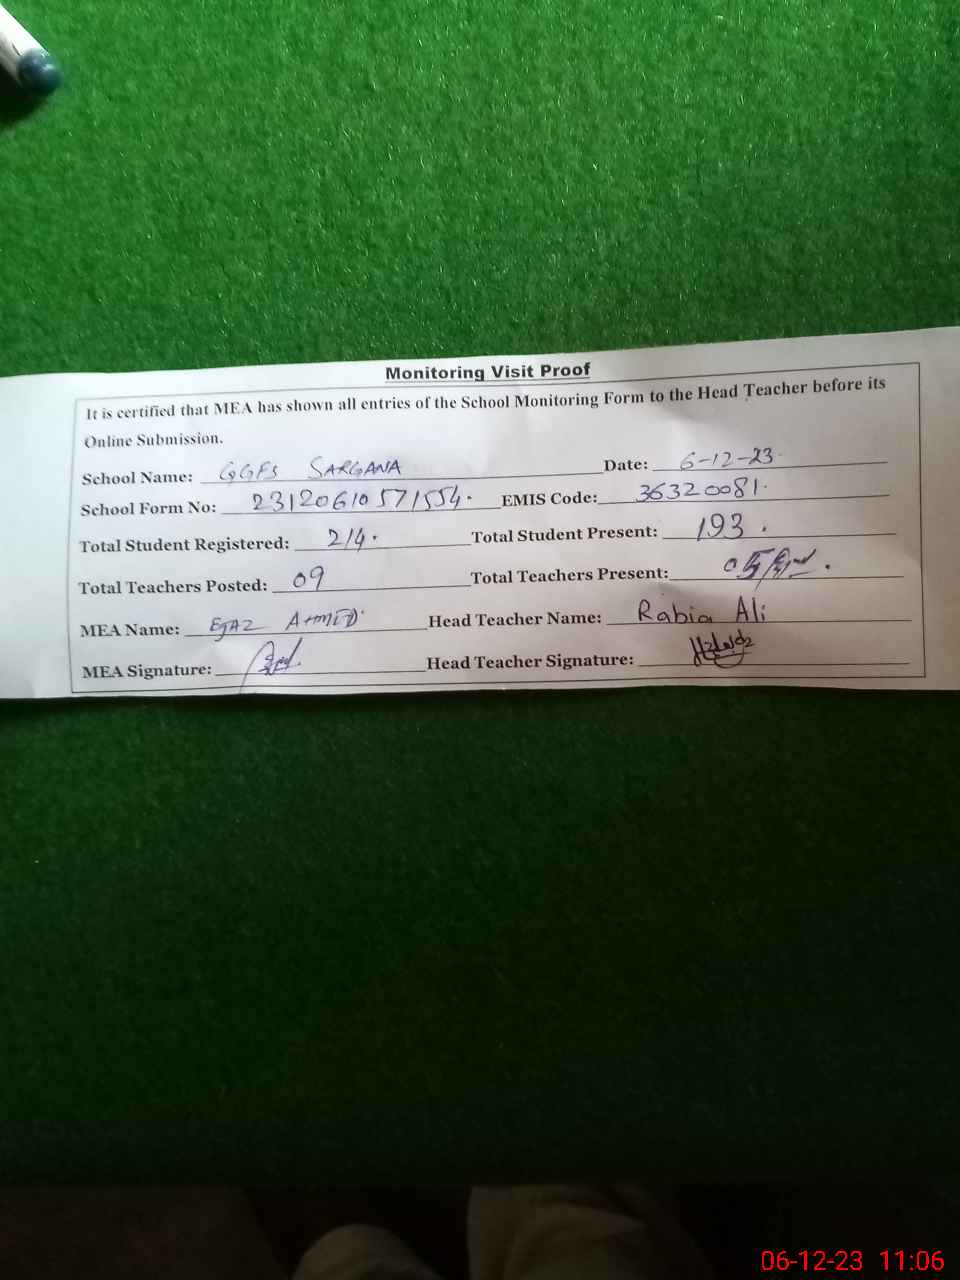 Monitoring Visit Proof
It is certified that MEA has shown all entries of the School Monitoring Form to the Head Teacher before its
Online Submission.
School Name: GGES SARGANA Date: 6-12-23
School Form No: 23120610571554. EMIS Code: 36320081.
Total Student Registered: 214. Total Student Present: 193.
Total Teachers Posted: 09 Total Teachers Present: 05
MEA Name: EJAZ AHMED Head Teacher Name: Rabia Ali
MEA Signature: Head Teacher Signature:
06-12-23 11:06